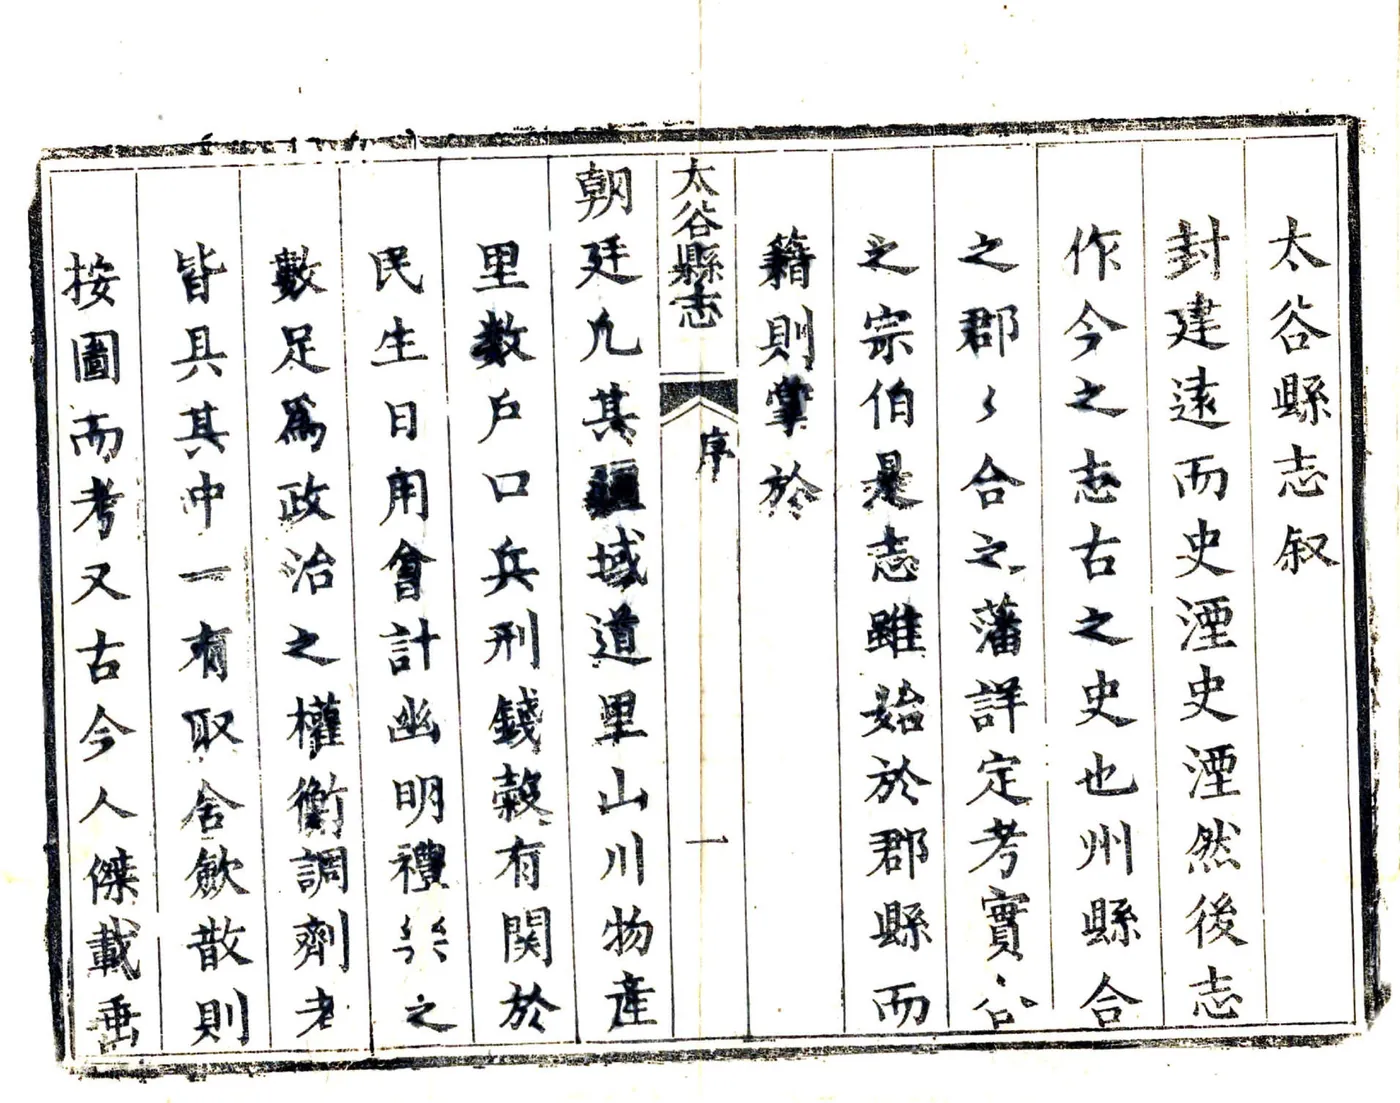 太谷縣志叙
封建遠而史湮史湮然後志
作今之志古之史也州縣合
之郡〻合之藩詳定考實
之宗伯是志雖始於郡縣而
籍則掌於
太谷縣志
序
一
朝廷凢其疆域道里山川物產
里数戶口兵刑錢穀有関於
民生日用會計幽明禮之
數足爲政治之權衡調劑者
皆具其中一有取舍斂散則
按圖而考又古今人傑載